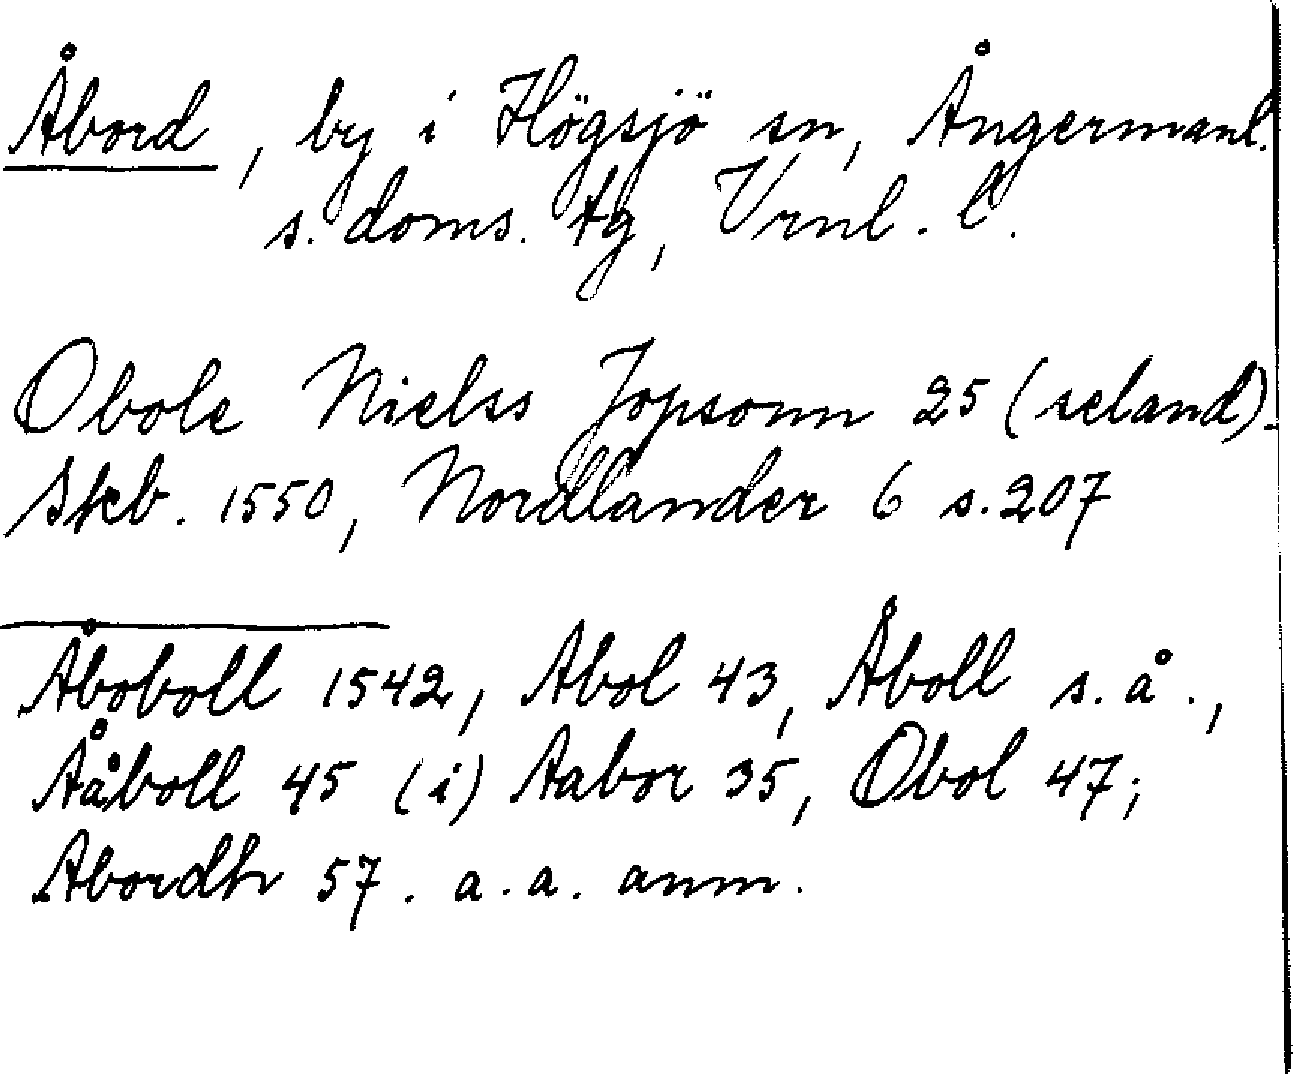 Åbord, by i Högsjö sn, Ångermanl.
s. doms. tg, Vrnl. l.
Obole Nielss Jopsonn 25 (seland).
Skb. 1550, Nordlander 6 s. 207
Åboboll 1542, Abol 43, Åboll s. å.,
Ååboll 45 (i) Aabor 35, Obol 47;
Abordh 57. a.a. anm.